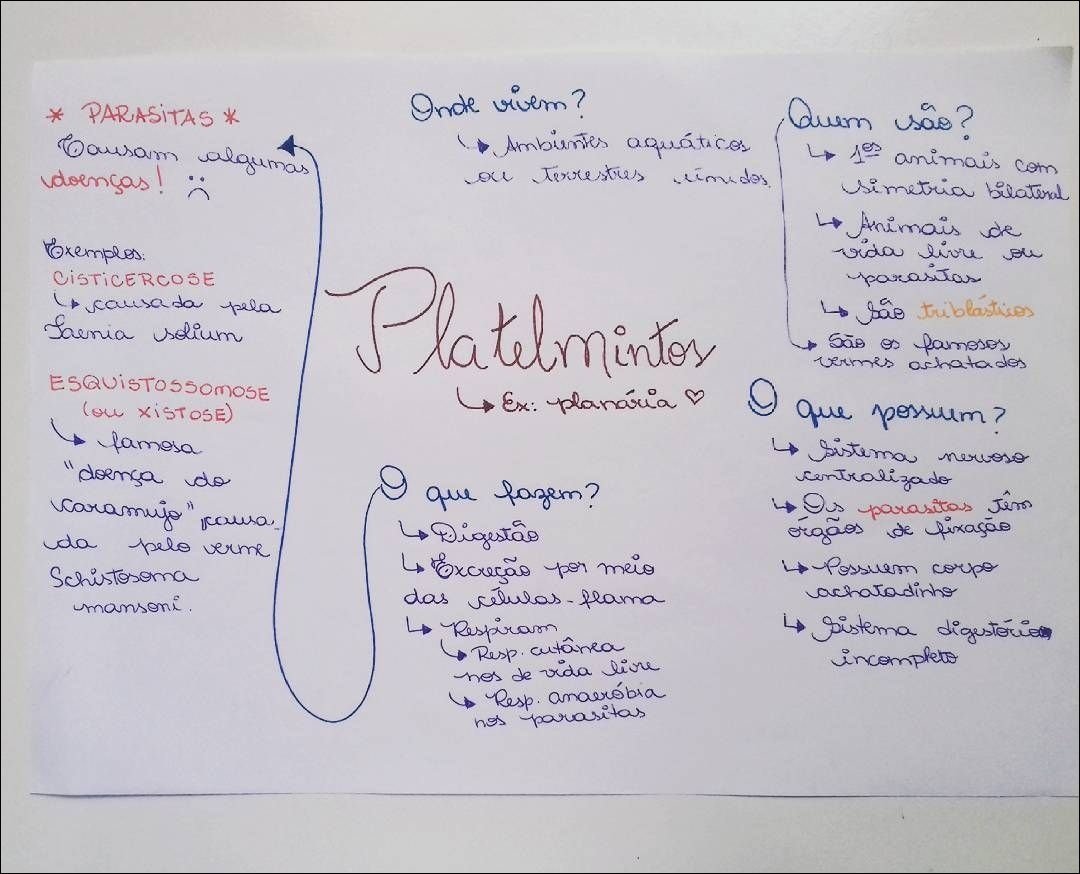 Platelmintos
↳ Ex: planária ♡
Onde vivem?
↳ Ambientes aquáticos
ou terrestres úmidos.
Quem são?
↳ 1ºs animais com
simetria bilateral
↳ Animais de
vida livre ou
parasitas
↳ São triblásticos
São os famosos
vermes achatados
O que possuem?
↳ Sistema nervoso
centralizado
↳ Os parasitas têm
órgãos de fixação
↳ Possuem corpo
achatadinho
↳ Sistema digestório
incompleto
O que fazem?
↳ Digestão
↳ Excreção por meio
das células-flama
↳ Respiram
↳ Resp. cutânea
nos de vida livre
↳ Resp. anaeróbia
nos parasitas
* PARASITAS *
Causam algumas
doenças! :(
Exemplos:
CISTICERCOSE
↳ causada pela
Taenia solium
ESQUISTOSSOMOSE
(ou XISTOSE)
↳ famosa
"doença do
caramujo", causa-
da pelo verme
Schistosoma
mansoni.